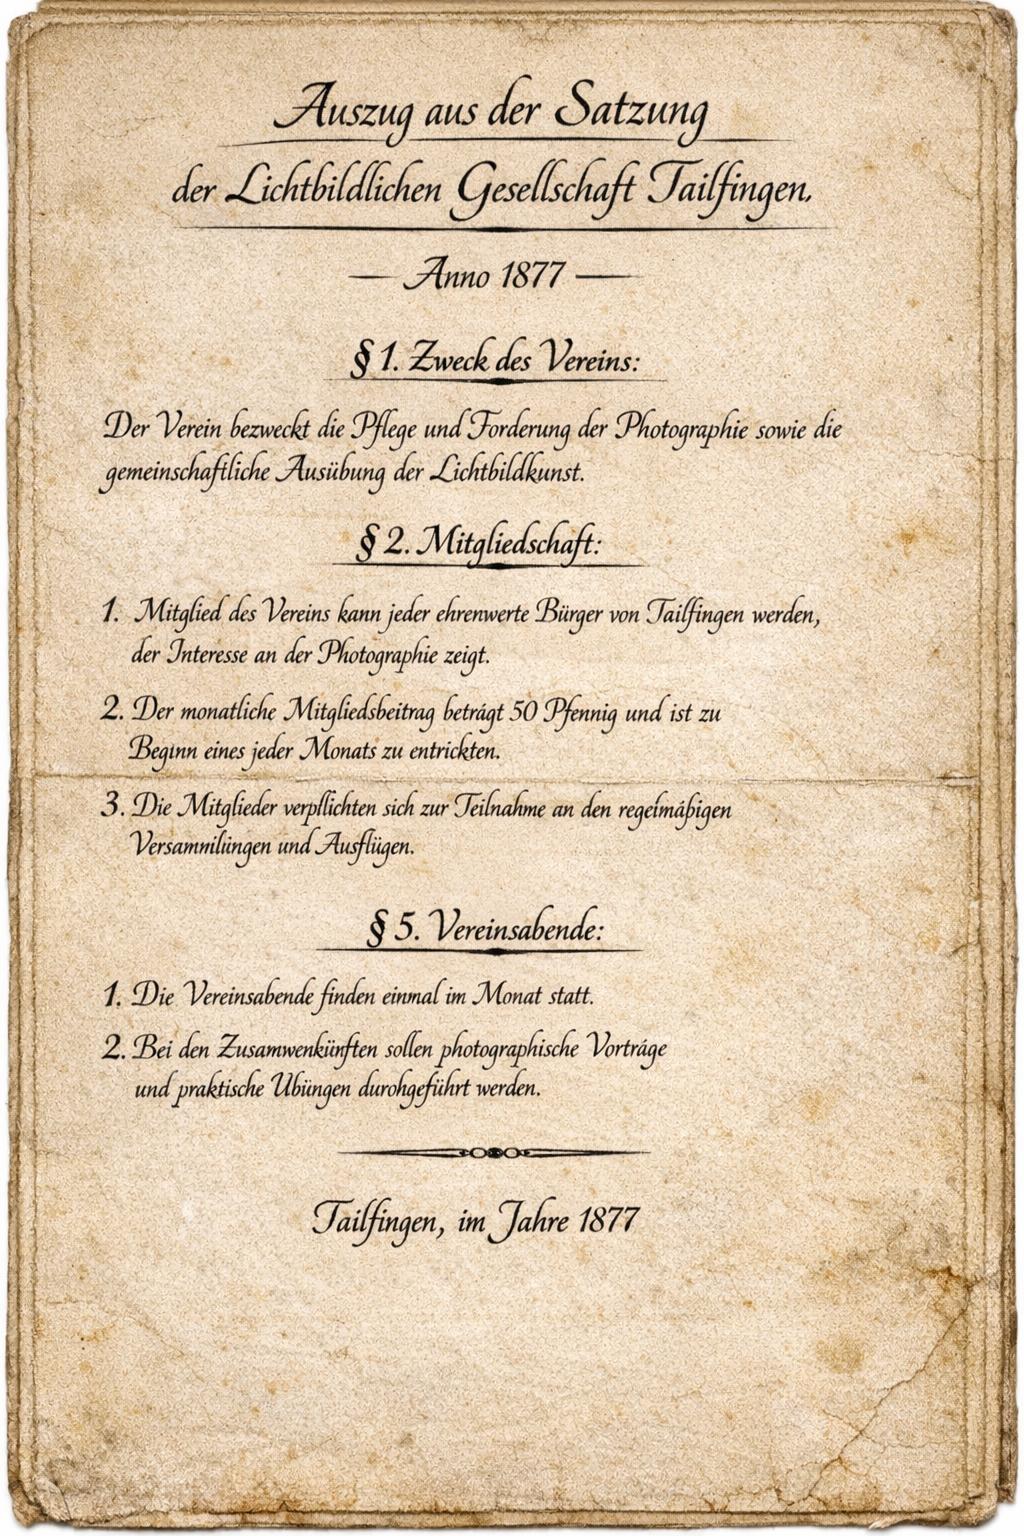 Auszug aus der Satzung
der Lichtbildlichen Gesellschaft Tailfingen.
— Anno 1877 —
§ 1. Zweck des Vereins:
Der Verein bezweckt die Pflege und Forderung der Photographie sowie die
gemeinschaftliche Ausübung der Lichtbildkunst.
§ 2. Mitgliedschaft:
1. Mitglied des Vereins kann jeder ehrenwerte Bürger von Tailfingen werden,
der Interesse an der Photographie zeigt.
2. Der monatliche Mitgliedsbeitrag beträgt 50 Pfennig und ist zu
Beginn eines jeder Monats zu entrickten.
3. Die Mitglieder verpflichten sich zur Teilnahme an den regelmäßigen
Versamnilüngen und Ausflügen.
§ 5. Vereinsabende:
1. Die Vereinsabende finden einmal im Monat statt.
2. Bei den Zusamwenkünften sollen photographische Vorträge
und praktische Ubüngen durohgeführt werden.
Tailfingen, im Jahre 1877